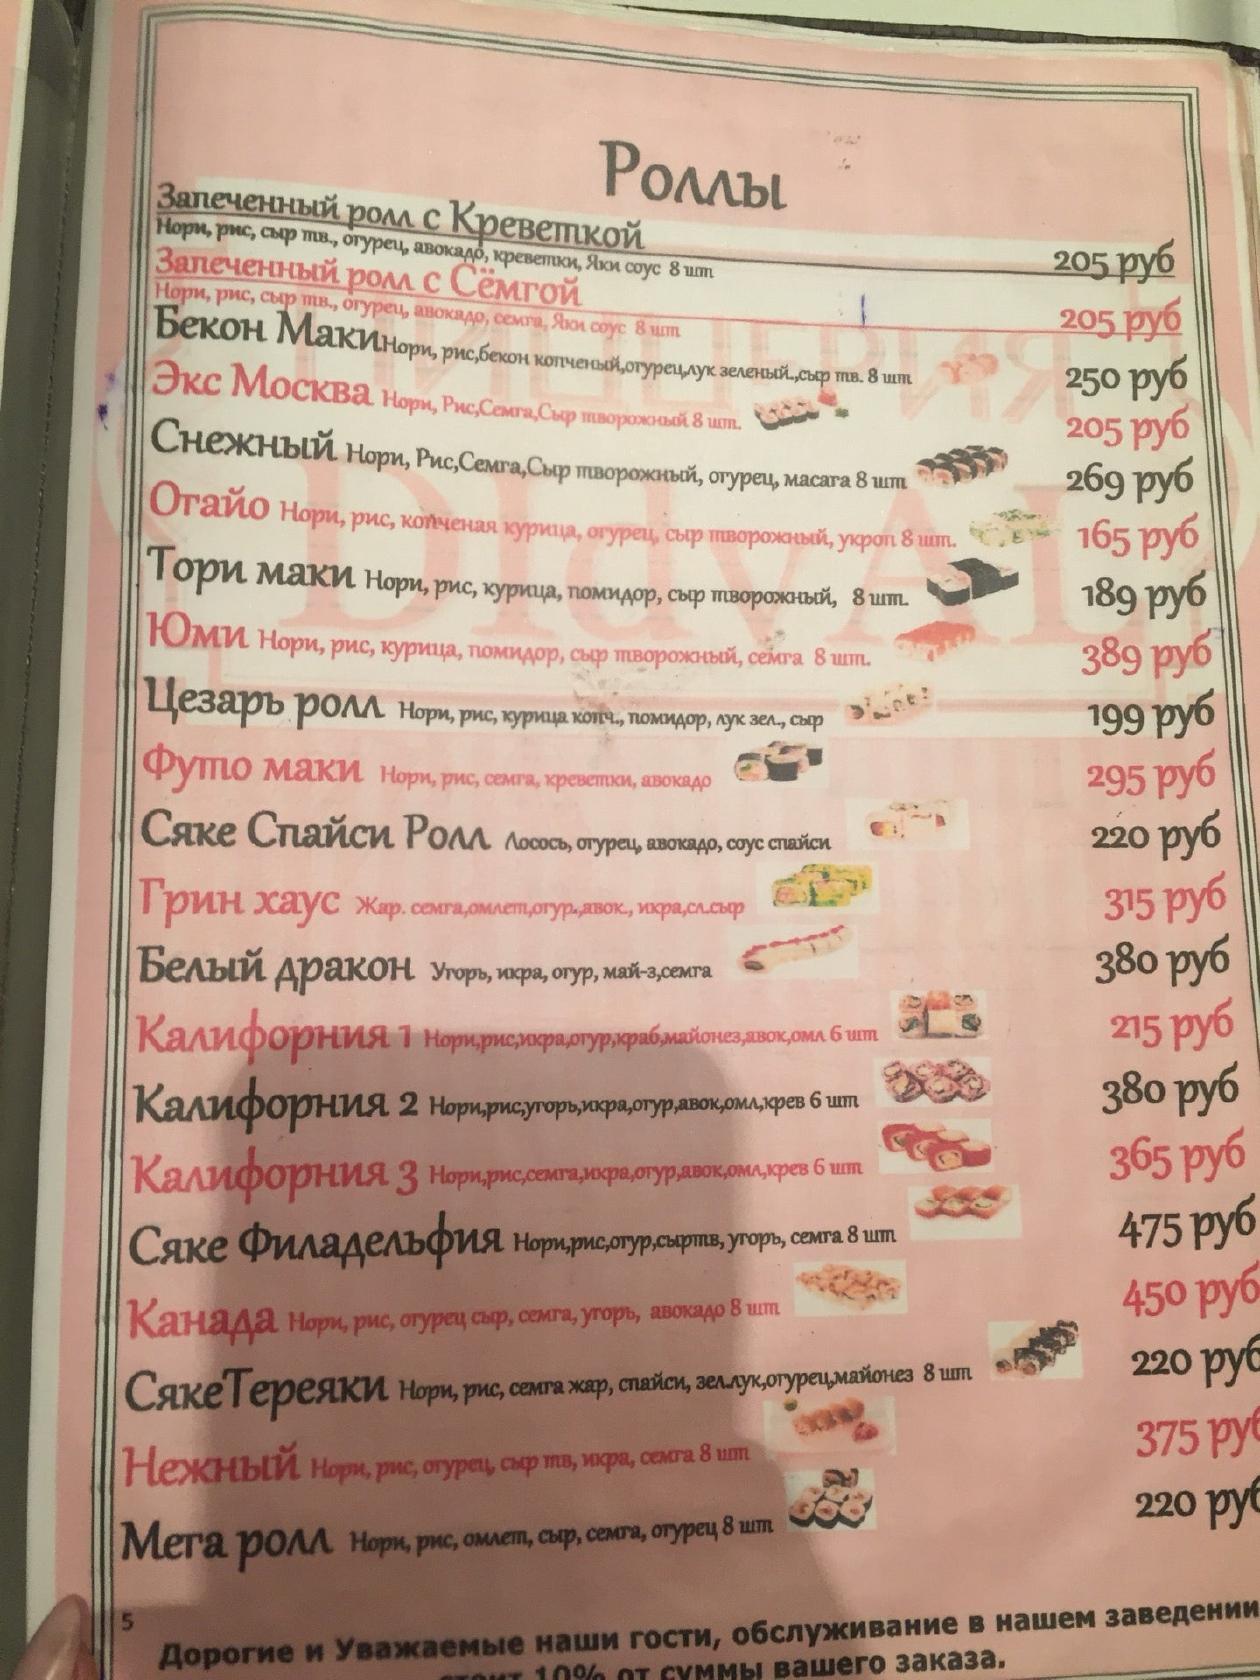 Роллы
Запеченный ролл с Креветкой 205 руб
Нори, рис, сыр тв., огурец, авокадо, креветки, Яки соус 8 шт
Запеченный ролл с Сёмгой 205 руб
Нори, рис, сыр тв., огурец, авокадо, семга, Яки соус 8 шт
Бекон Маки Нори, рис,бекон копченый,огурец,лук зеленый.,сыр тв. 8 шт 250 руб
Экс Москва Нори, Рис,Семга,Сыр творожный 8 шт. 205 руб
Снежный Нори, Рис,Семга,Сыр творожный, огурец, масага 8 шт 269 руб
Огайо Нори, рис, копченая курица, огурец, сыр творожный, укроп 8 шт. 165 руб
Тори маки Нори, рис, курица, помидор, сыр творожный, 8 шт. 189 руб
Юми Нори, рис, курица, помидор, сыр творожный, семга 8 шт. 389 руб
Цезарь ролл Нори, рис, курица копч., помидор, лук зел., сыр 199 руб
Футо маки Нори, рис, семга, креветки, авокадо 295 руб
Сяке Спайси Ролл Лосось, огурец, авокадо, соус спайси 220 руб
Грин хаус Жар. семга,омлет,огур.,авок., икра,сл.сыр 315 руб
Белый дракон Угорь, икра, огур, май-з,семга 380 руб
Калифорния 1 Нори,рис,икра,огур,краб,майонез,авок,омл 6 шт 215 руб
Калифорния 2 Нори,рис,угорь,икра,огур,авок,омл,крев 6 шт 380 руб
Калифорния 3 Нори,рис,семга,икра,огур,авок,омл,крев 6 шт 365 руб
Сяке Филадельфия Нори,рис,огур,сыртв, угорь, семга 8 шт 475 руб
Канада Нори, рис, огурец сыр, семга, угорь, авокадо 8 шт 450 руб
СякеТереяки Нори, рис, семга жар, спайси, зел.лук,огурец,майонез 8 шт 220 руб
Нежный Нори, рис, огурец, сыр тв, икра, семга 8 шт 375 руб
Мега ролл Нори, рис, омлет, сыр, семга, огурец 8 шт 220 руб
5
Дорогие и Уважаемые наши гости, обслуживание в нашем заведении
стоит 10% от суммы вашего заказа.